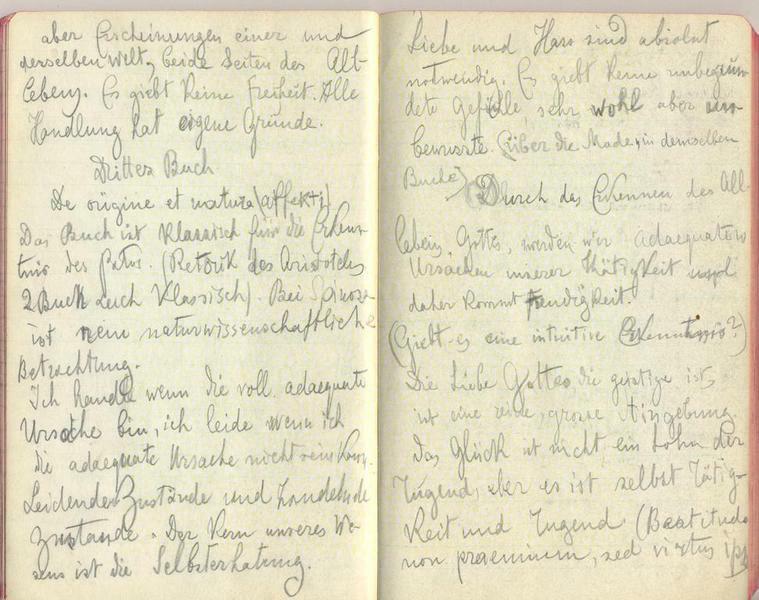 aber Erscheinungen einer und
derselben Welt, beide Seiten des All-
lebens. Es giebt keine Freiheit. Alle
Handlung hat eigene Gründe.
Drittes Buch
De origine et natura (affekti)
Das Buch ist klassisch für die Erkennt-
tnis des (Retorik des Aristoteles
2 Buch auch klassisch). Bei Spinoza
ist rein naturwissenschaftliche
Betrachtung.
Ich handle wenn die voll adaequate
Ursache bin, ich leide wenn ich
die adaequate Ursache nicht sein kann.
Leidende Zustände und handelnde
Zustände. Der Kern unseres We-
sens ist die Selbsterhaltung.
Liebe und Hass sind absolut
notwendig. Es giebt keine unbegrün-
dete Gefühle, sehr wohl aber un-
bewusste. (über die Made, in demselben
Buche) Durch das Erkennen des All-
lebens, Gottes, werden wir adaequatere
Ursachen unserer Thätigkeit und
daher kommt Freudigkeit.
(Giebt es eine intuitive Erkenntniss?)
Die Liebe Gottes, die geistige ist,
ist eine reine, grosse Hingebung.
Das Glück ist nicht ein Lohn der
Tugend, aber es ist selbst Tätig-
keit und Tugend. (Beatitudo
non praemium, sed virtus ipsa